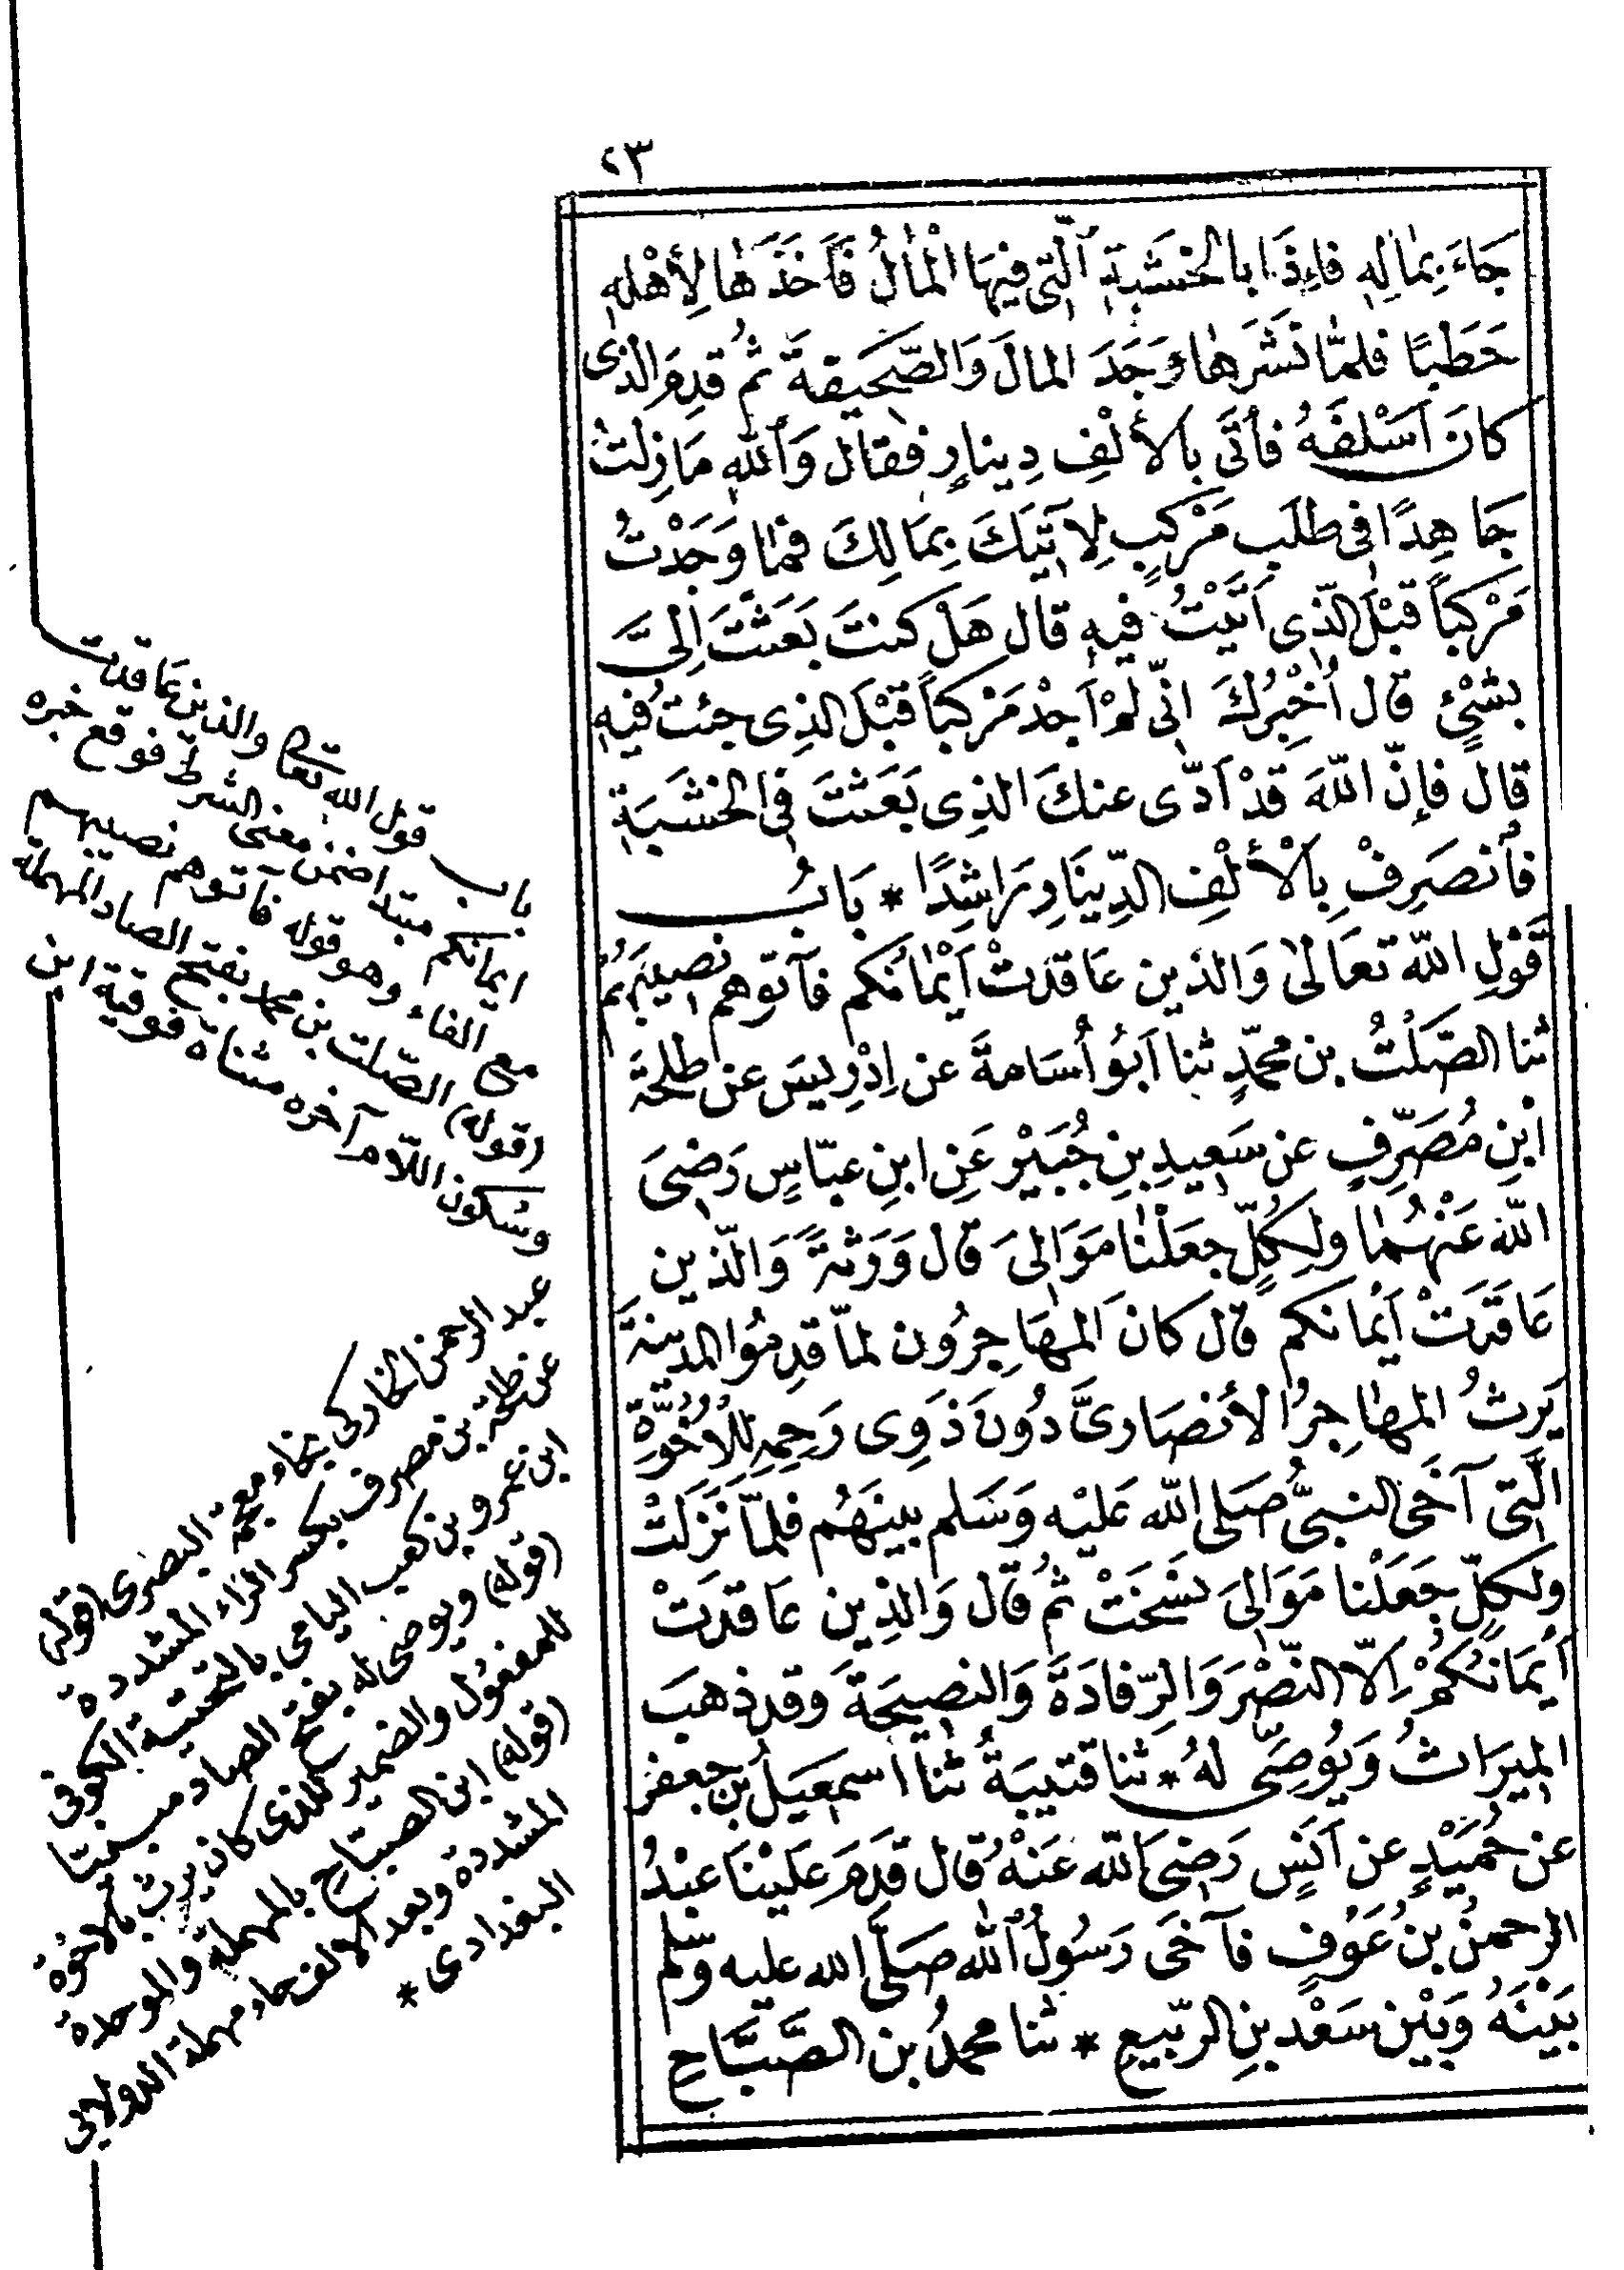 ٢٣
جَاءَ بِمَالِهِ فاِذَا بالخشَبَةِ ٱلّتِى فيهَا الْمَالُ فَأَخَذَهَا لِأهْلِهِ
حَطَبًا فلمَّا نَشَرَهَا وَجَدَ المالَ وَالصّحَيفةَ ثمُ قدِمَ الذى
كانَ اَسْلفَهُ فأتَى بالأَلْفِ دِينارٍ فقال وَٱللّٰهِ مَا زِلتُ
جَاهِدًا فى طلَبِ مَرْكبٍ لِآتِيَكَ بِمَالِكَ فمَا وَجَدْتُ
مَرْكباً قبْلَ الّذِى اَتَيْتُ فيهِ قال هَل كنتَ بَعَثتَ اِلىَّ
بشْئٍ قال اُخْبِرُكَ انّى لَمْ اَجدْ مَرْكباً قَبْلَ الذِى جئت فيهِ
قالَ فاِنّ اللّٰهَ قَدْ اَدّى عنكَ الذِى بَعَثتَ فى الخشَبَةِ
فأنصَرِفْ بِالْأَلْفِ الدِّينَارِ رَاشِدًا * بَابُ
قَوْلِ اللّٰه تعَالىٰ وَالذين عَاقدَتْ اَيْمانُكم فآتوهم نصِيبَهُمْ
ثنا الصَّلْتُ بن محمّدٍ ثنا اَبُو اُسَامةَ عن اِدْرِيسَ عن طلحَة
ابْنِ مُصَرِّفٍ عن سَعِيدِ بنِ جُبَيْرٍ عَنِ ابنِ عبّاسٍ رَضِىَ
اللّٰه عَنْهُما ولِكُلٍّ جعَلْنا مَوَالِىَ قال وَرَثةً وَالّذين
عَاقَدَتْ اَيْمانكم قال كانَ المهَاجِرُون لمّا قدِمُوا المدينةَ
يَرِثُ المهَاجِرُ الأنصَارىَّ دُونَ ذَوِى رَحِمِهِ لِلْاُخُوَّةِ
الَّتِى آخَى النبىُّ صَلى اللّٰه عَليْه وَسَلم بينَهُم فلمّا نَزَلَتْ
ولكلٍّ جَعَلْنا مَوَالىَ نسَخَتْ ثمُ قال وَالذِين عَاقدَتْ
اَيْمَانُكُمْ اِلّا النّصْرَ وَالرِّفادَةَ وَالنصِيحَةَ وَقد ذهبَ
الميرَاثُ وَيُوصَى لهُ * ثنا قتيبَةُ ثنا اسمعيَلُ بن جعفر
عن حُمَيْدٍ عن اَنَسٍ رَضِىَ اللّٰه عَنْهُ قال قَدِمَ عَلَيْنَا عبْدُ
الرحمنُ بنُ عَوْفٍ فآخَى رَسُولُ ٱللّٰه صَلَّى الله عليه وسّلم
بَيْنَهُ وَبَيْن سَعْد بنِ الرّبيعِ * ثنا محمدُ بن الصَّبَّاحِ
باب قول الله تعالى والذين عاقدت
ايمانكم مبتدا ضمّن معنى الشرط فوقع خبره
مع الفاء وهو قوله فآتوهم نصيبهم
(قوله) الصّلت بن محمد بفتح الصاد المهملة
وسُكون اللّام آخره مثناة فوقية ابن
عبد الرحمن الخاركى بخاء معجمة البصرى (قوله)
عن طلحة بن مصرف بكسر الرّاء المشددة
ابن عمرو بن كعب اليامى بالتحتية الكوفى
(قوله) ويوصى له بفتح الصاد مبنيّا
للمفعُول والضمير للذى كان يرث بالاخُوة
(قوله) ابن الصبّاح بالمهملة والموحدة
المشددة وبعد الالف حاء مهملة الدولابى
البغدادى *